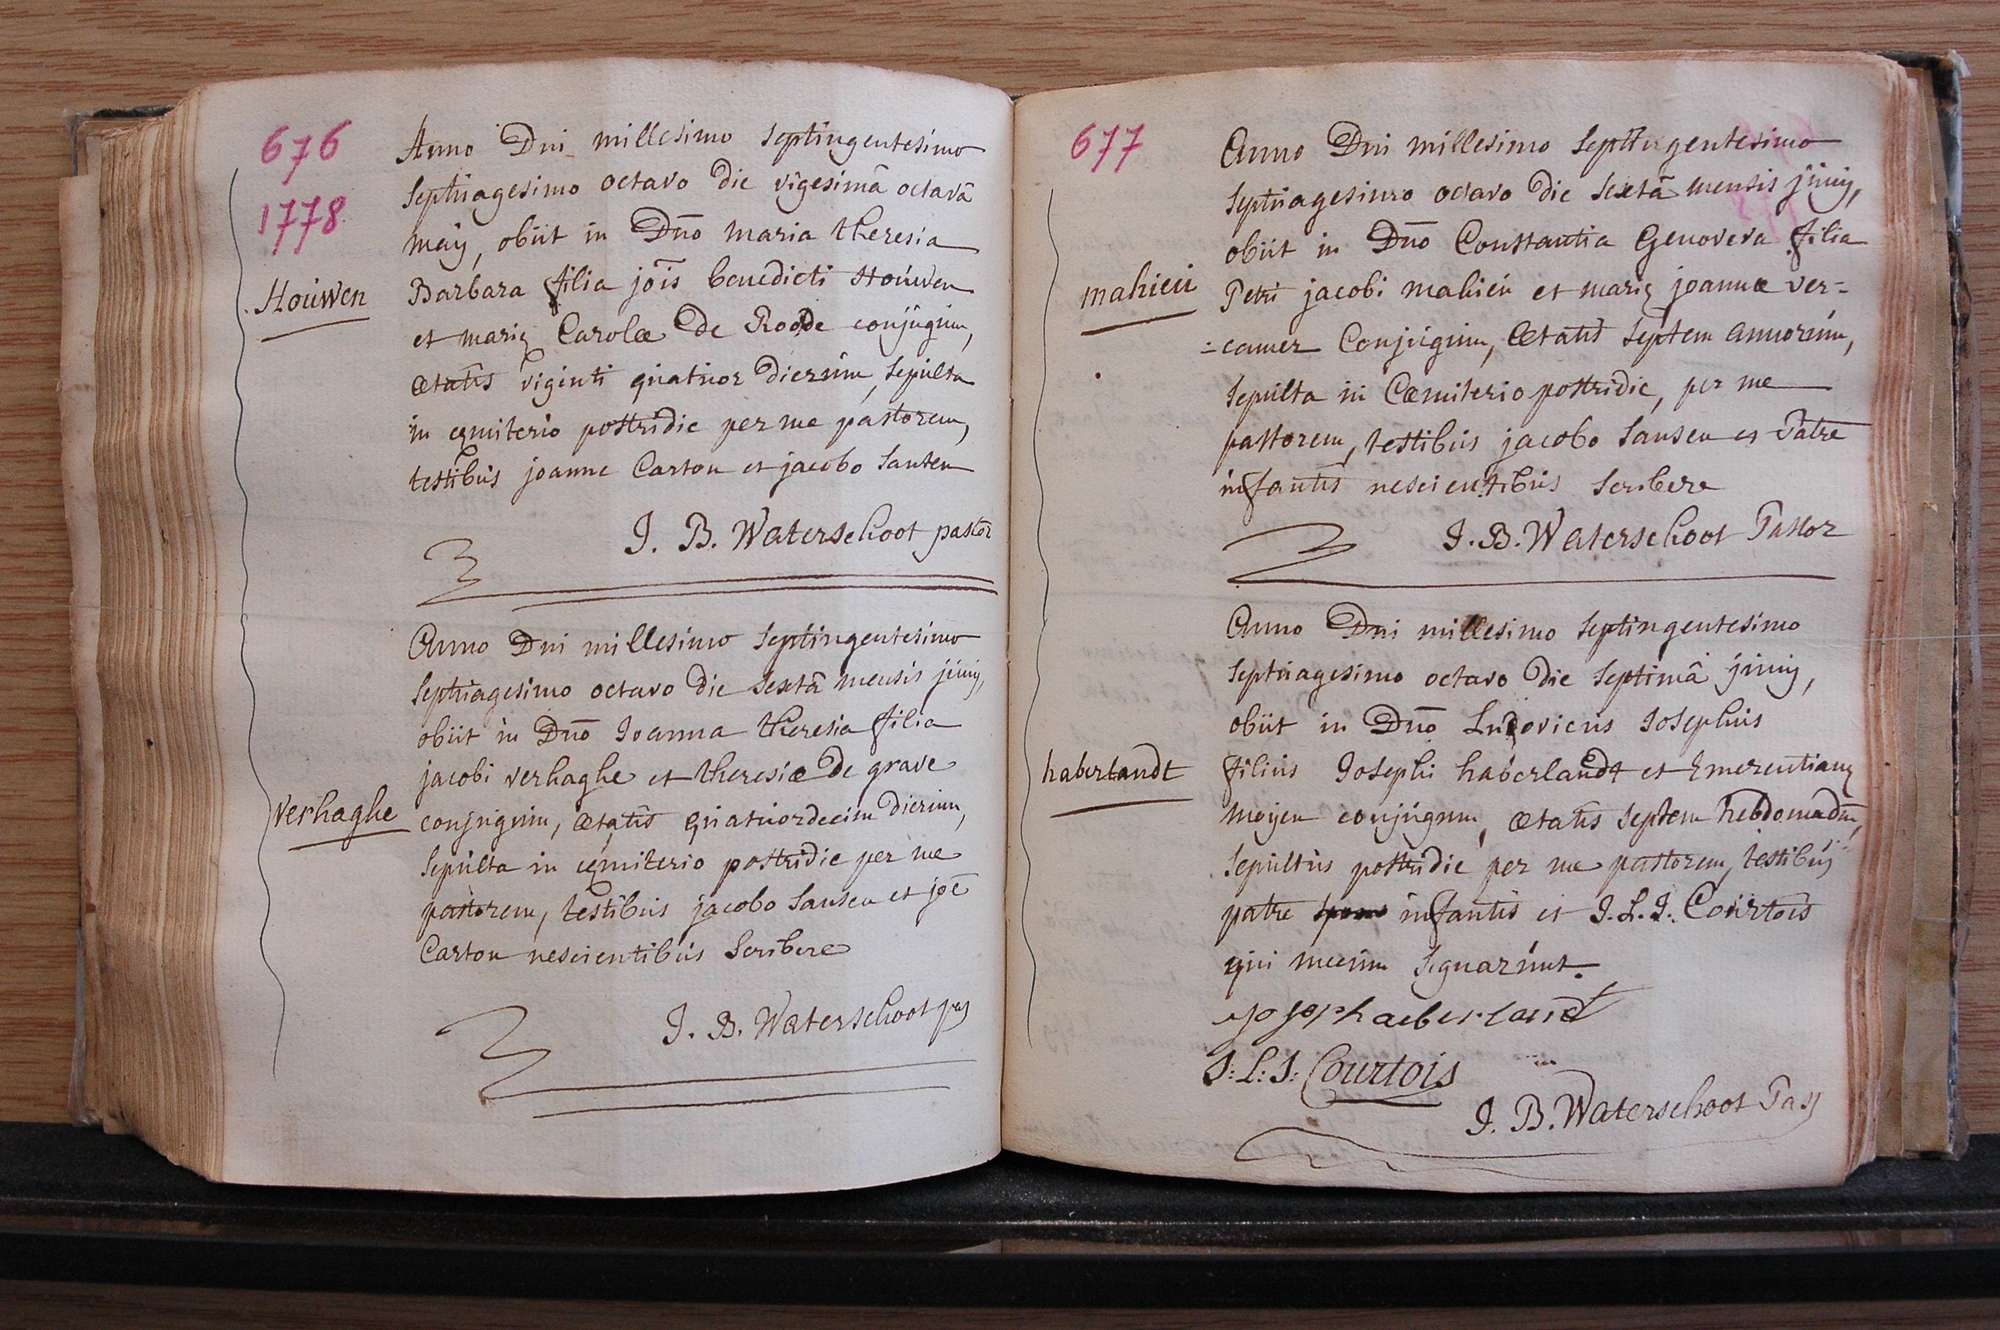 676
1778
Anno Dni millesimo septingentesimo
septuagesimo octavo die vigesimâ octavâ
maÿ, obiit in Dn̄o maria theresia
Houwen
Barbara filia jōis benedicti Houwen
et mariæ Carolæ De Roode conjugum,
ætatis viginti quatuor dierum, sepulta
in cæmiterio postridie per me pastorem,
testibus joanne Carton et jacobo Sansen
J. B. Waterschoot pastor
Anno Dni millesimo septingentesimo
septuagesimo octavo die sextâ mensis junij,
obiit in Dn̄o Joanna theresia filia
jacobi verhaghe et theresiæ De grave
verhaghe
conjugum, ætatis quatuordecim dierum,
sepulta in cæmiterio postridie per me
pastorem, testibus jacobo Sansen et joē
Carton nescientibus scribere
J. B. Waterschoot pas
677
Anno Dni millesimo septingentesimo
septuagesimo octavo die sextâ mensis junij,
obiit in Dn̄o Constantia Genoveva filia
mahieu
Petri jacobi mahieu et mariæ joannæ ver=
=camer Conjugum, Ætatis septem annorum,
sepulta in Cæmiterio postridie, per me
pastorem, testibus jacobo Sansen et Patre
infantis nescientibus scribere
J. B. Waterschoot Pastor
Anno Dni millesimo septingentesimo
septuagesimo octavo die septimâ junij,
obiit in Dn̄o Ludovicus Josephus
haberlandt
filius Josephi haberlandt et Emerentianæ
moyen conjugum, ætatis septem hebdomadum,
sepultus postridie per me pastorem, testibus
patre infantis et J. L. J. Courtois
qui mecum signarunt.
Josephaeberlandt
J: L: J: Courtois
J. B. Waterschoot Pass